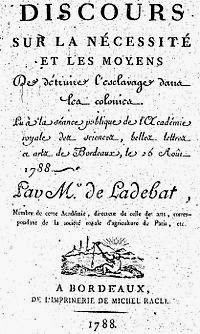 DISCOURS
SUR LA NÉCESSITÉ
ET LES MOYENS
De détruire l'esclavage dans
les colonies.
Lu à la séance publique de l'Académie
royale des sciences, belles lettres
et arts de Bordeaux, le 26 Août
1788.
Par Mr. de Ladebat,
Membre de cette Académie, directeur de celle des arts, corres-
pondant de la société royale d'agriculture de Paris, etc.
A BORDEAUX,
DE L'IMPRIMERIE DE MICHEL RACLE.
1788.